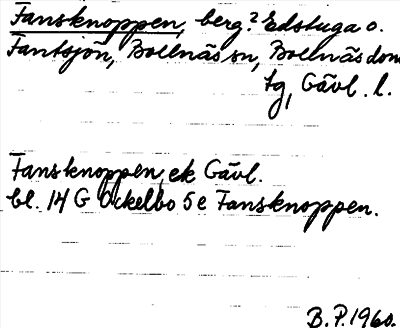 Fansknoppen, berg? Edstuga o.
Fantsjön, Bollnäs sn, Bollnäs dom
tg, Gävl. l.
Fansknoppen, ek Gävl.
bl. 14 G Ockelbo 5e Fansknoppen.
B.P. 1960.